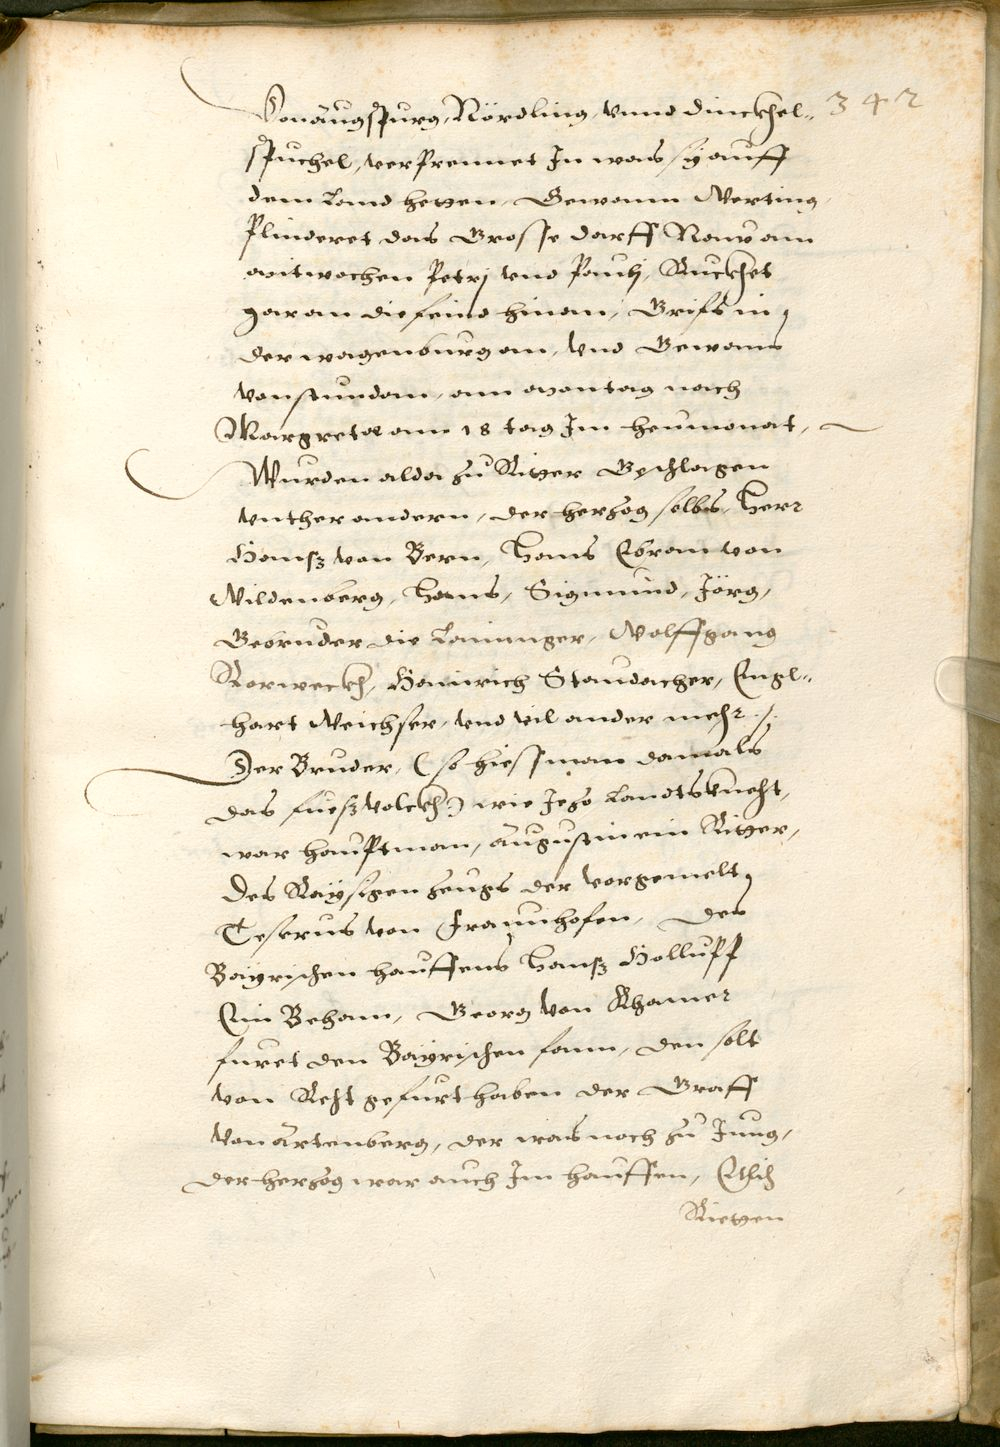 342
Von augspurg, Nördling, vnnd dinckhel„
spuchel, verprennet In was sy auff
dem Land hetten, Gewann Werting,
Plinderet das Grosse darff Naw am
mitwochen Petrj vnd Paulj, Ruckhet
gar an die feind hinan, Griffs in
der wagenburg an, vnd Gewans
von stundan, am montag nach
Margretæ am 18 tag Im heumonat,
Wurden alda zu Ritter Gschlagen
vnther andern, der herzog selbs, Herr
Hansz von Bern, Hans Ebran von
Wildenberg, Hans, Sigmund, Jörg,
Gebrueder die Laiminger, Wolffgang
Rorweckh, Hainrich Staudacher, Engl„
hart Weichser, vnd vil ander mehr ./.
Der Bruder, (so hiess man damals
das fuesz volckh) wie Jezo Landtskneht,
war hauptman, augustin ein Ritter,
Des Raysigen zeugs der vorgemelt
Teserus von Fraunhofen, des
Bayrischen hauffens Hansz Holluppf
Ein Beham, Georg von Khamer
furet den Bayrischen fann, den solt
von Reht gefurt haben der Graff
von artenberg, der was noch zu Jung,
der herzog war auch Im hauffen, Etlich
Rietten